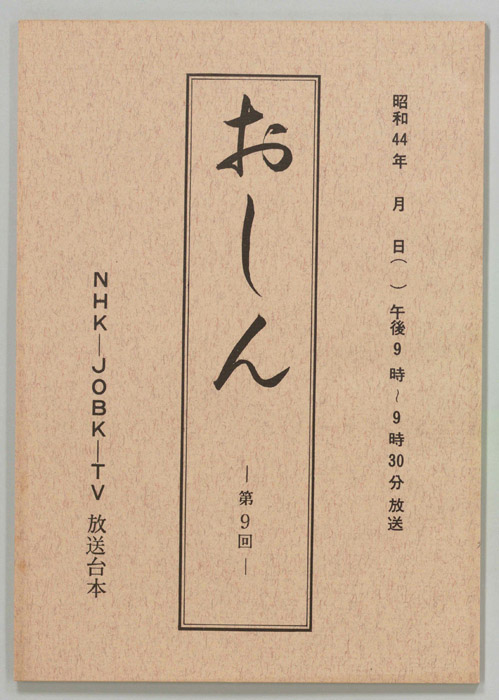 昭和44年　月　日（　）午後9時～9時30分放送
おしん
―第9回―
NHK―JOBK―TV 放送台本